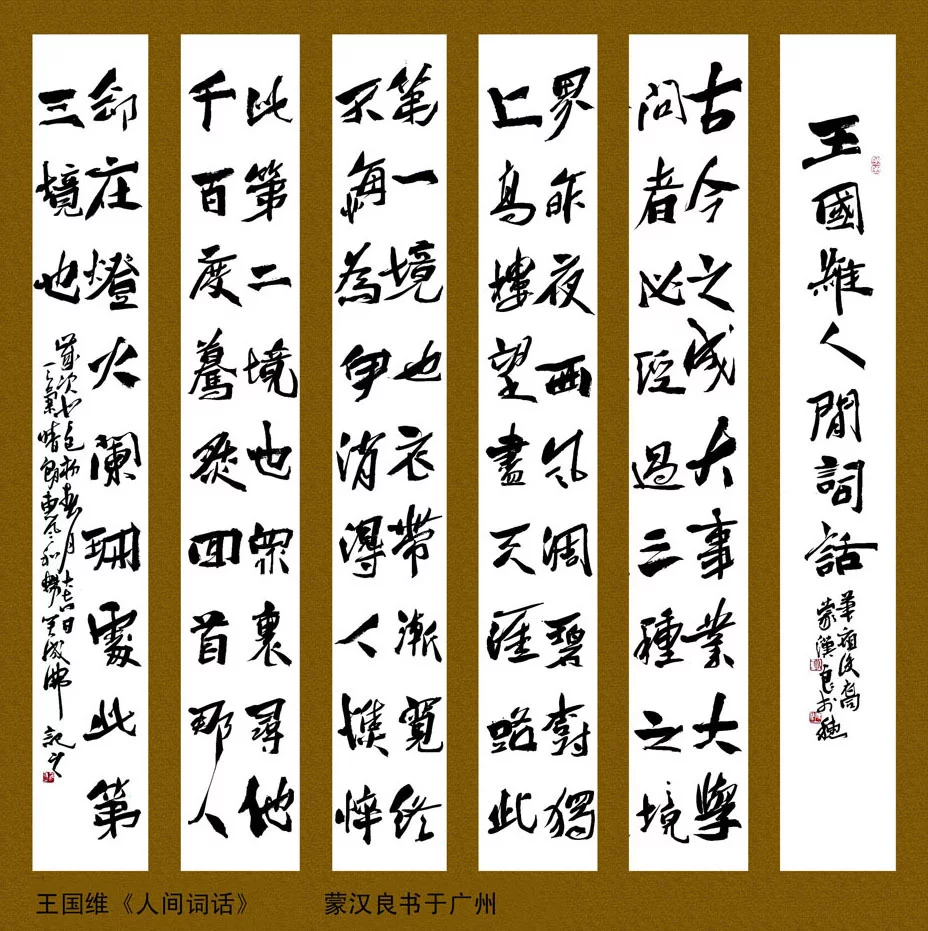 王國維人間詞話
蒙漢良於穗
古今之成大事業大學
問者必經過三種之境
界昨夜西風凋碧樹獨
上高樓望盡天涯路此
第一境也衣帶漸寬終
不悔為伊消得人憔悴
此第二境也眾裏尋他
千百度驀然回首那人
卻在燈火闌珊處此第
三境也
歲次
晴朗惠風和暢
记之
王国维《人间词话》
蒙汉良书于广州